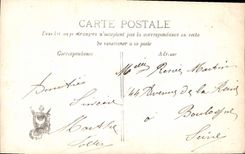 CARTE POSTALE
Tous les pays étrangers n'acceptent pas la correspondance au recto
se renseigner à la poste
Correspondance
Adresse
Amitiés
Marthe
Mlle Renée Martin
44 Avenue de la Reine
à Boulogne
Seine